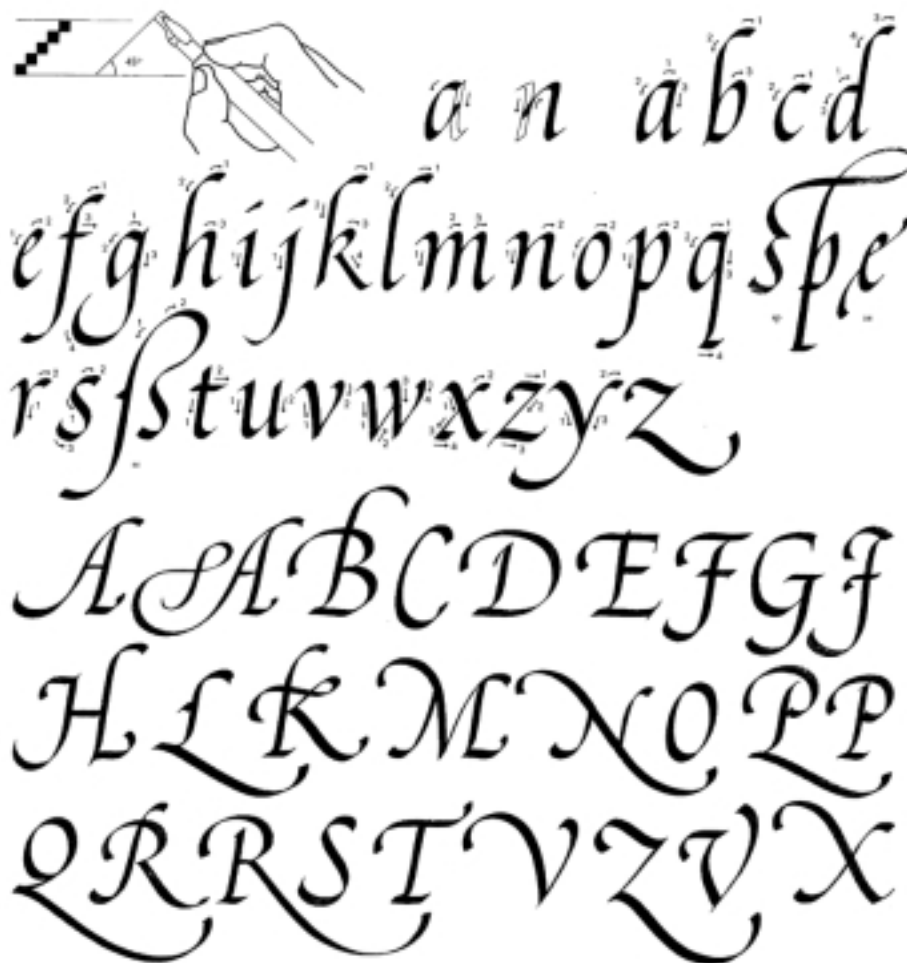 45°
a n a b c d
e f g h i j k l m n o p q sp e
r s ß t u v w x z y z
A A B C D E F G
H L K M N O P P
Q R R S T V Z V X